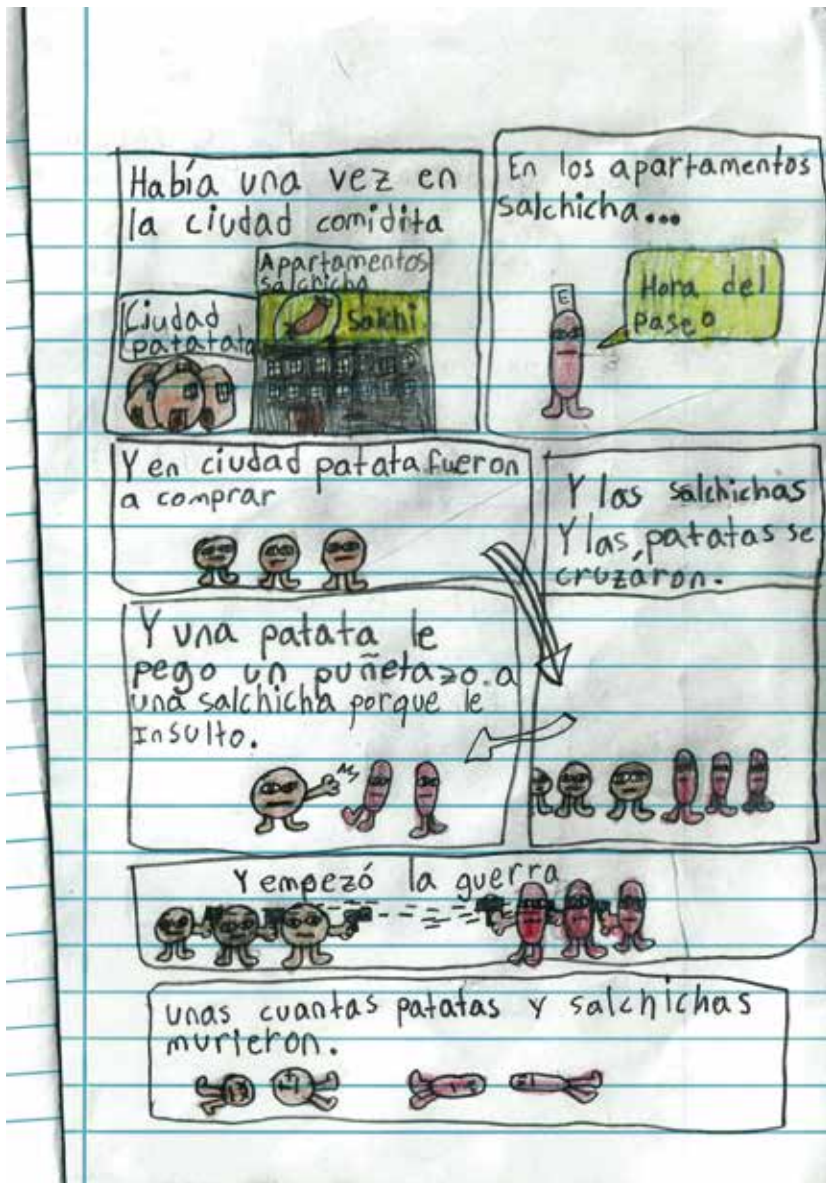 Había una vez en
la ciudad comidita
Apartamentos
salchicha
Salchi
Ciudad
patatata
En los apartamentos
salchicha...
E
Hora del
paseo
Y en ciudad patata fueron
a comprar
Y las salchichas
Y las, patatas se
cruzaron.
Y una patata le
pego un puñetazo. a
una salchicha porque le
Insulto.
Y empezó la guerra
unas cuantas patatas y salchichas
murieron.